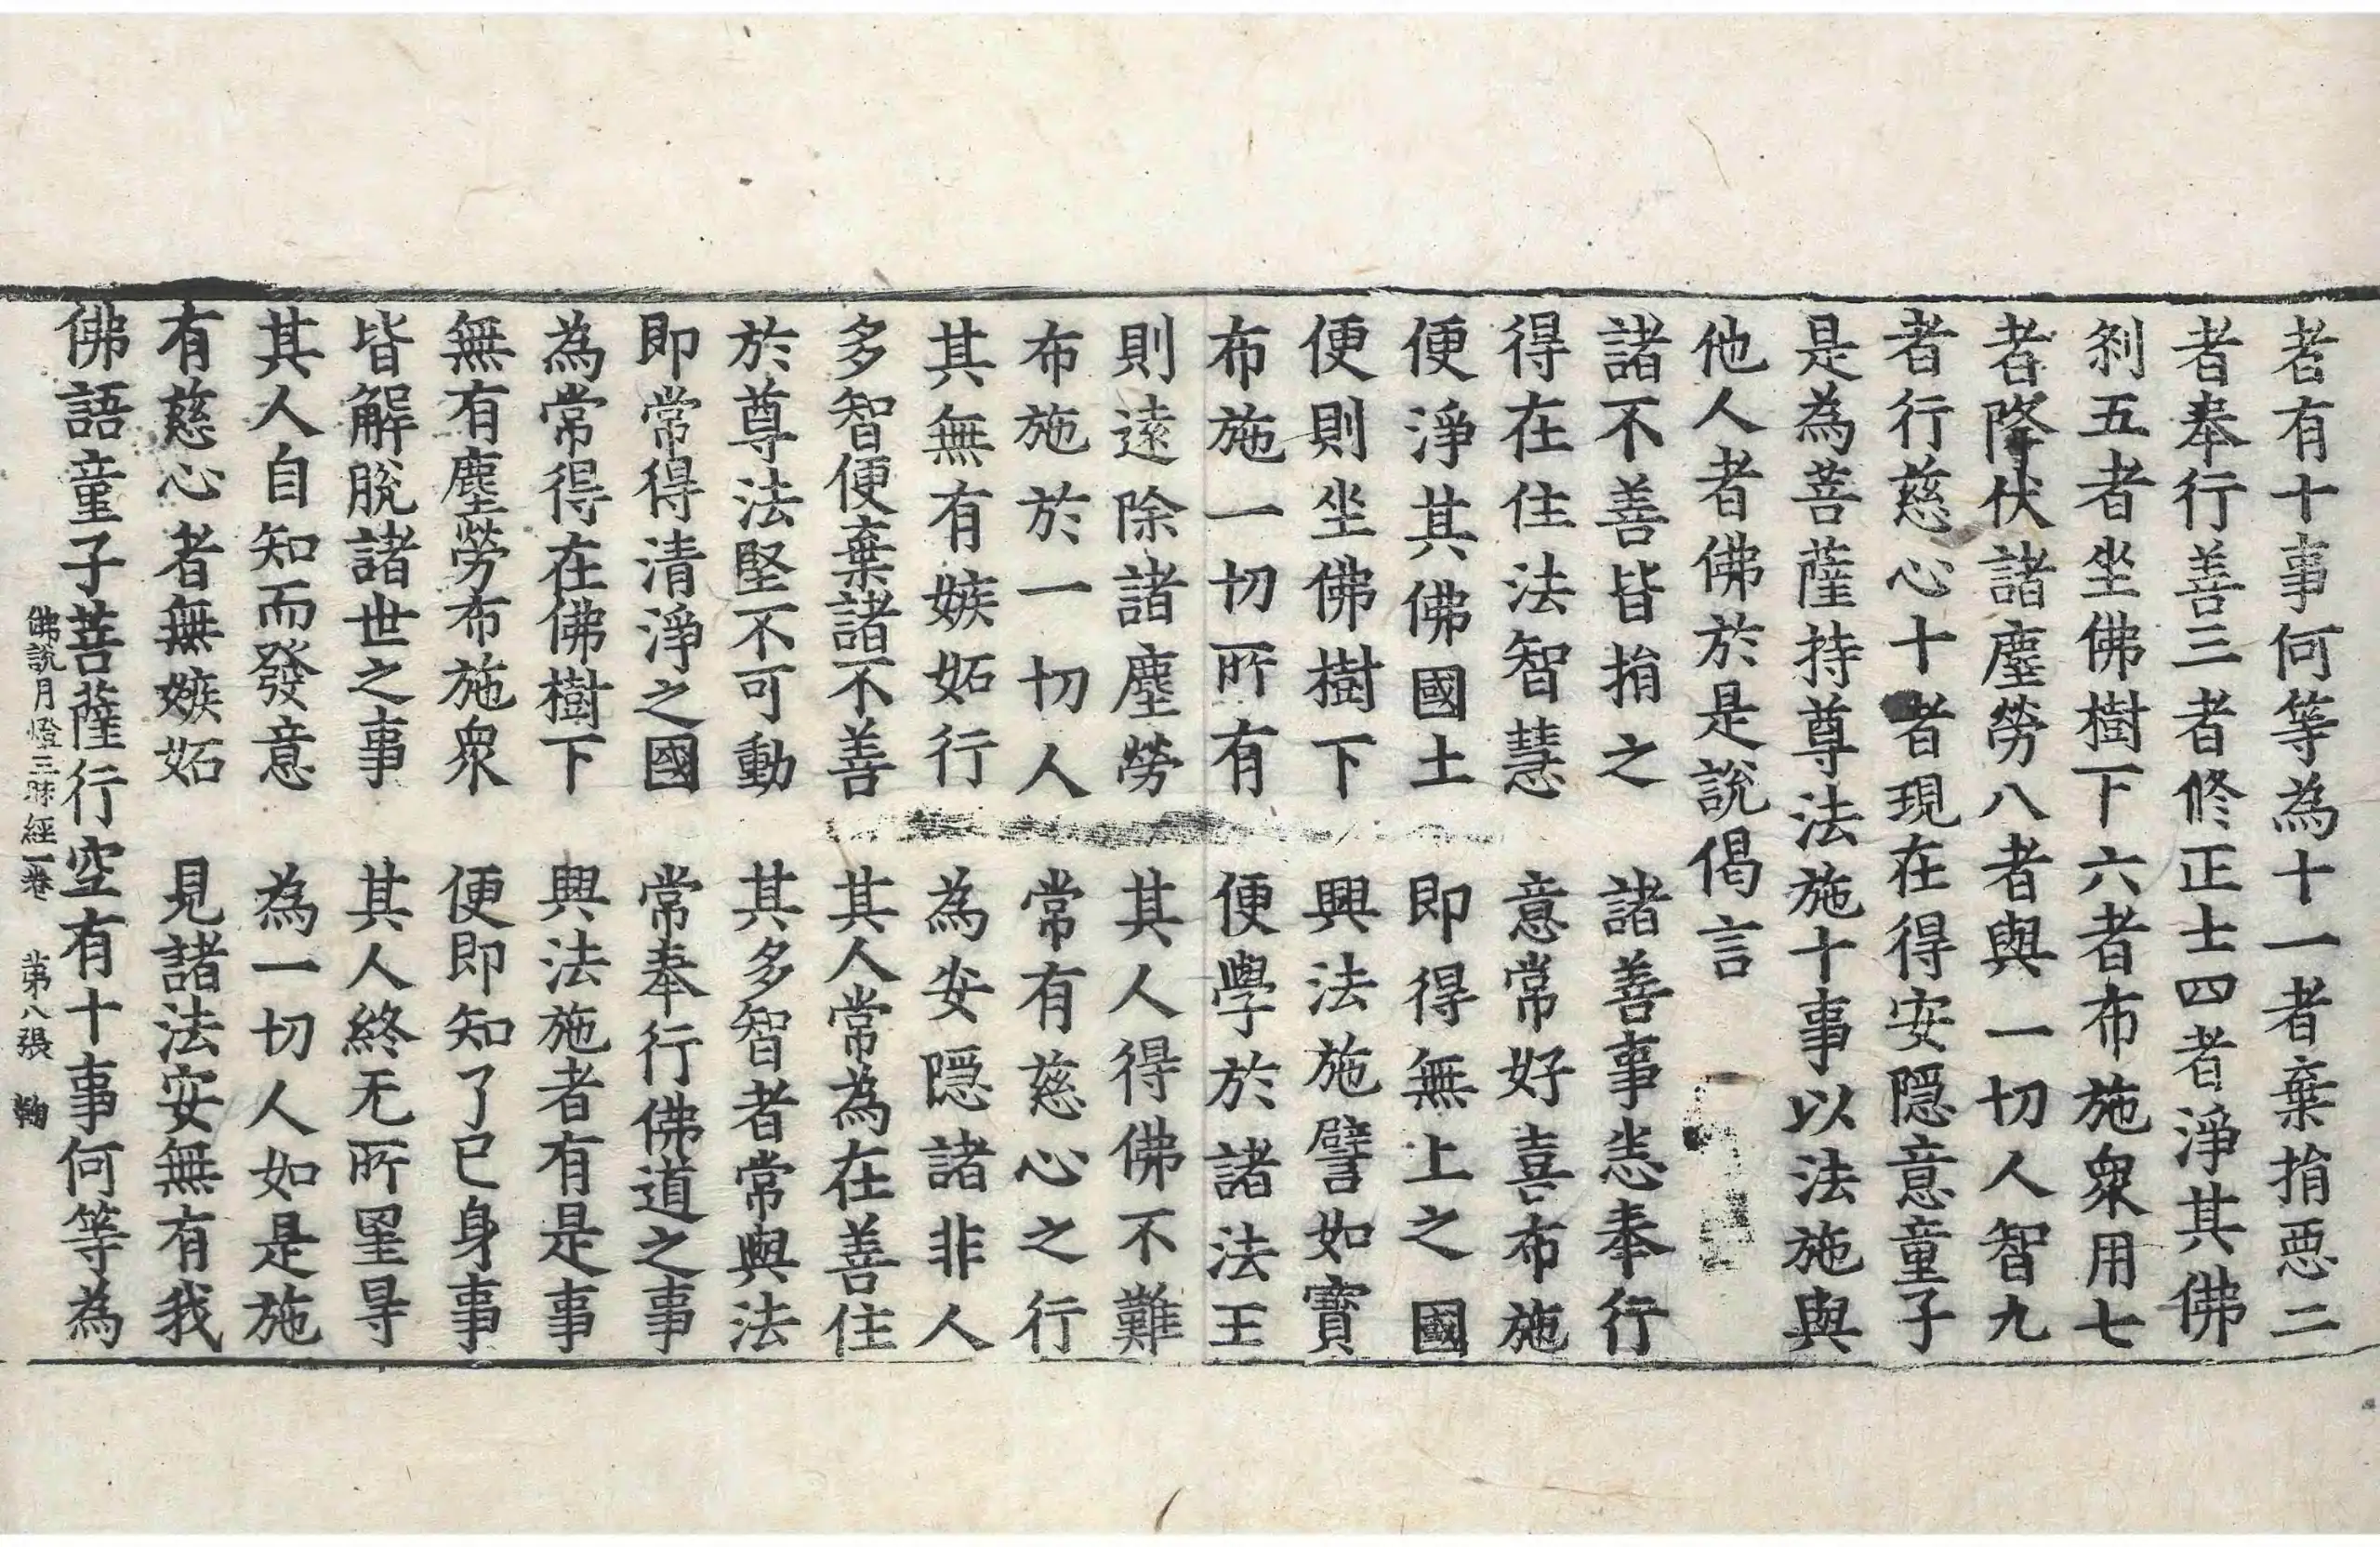 者有十事何等為十一者棄捐惡二
者奉行善三者修正士四者淨其佛
刹五者坐佛樹下六者布施衆用七
者降伏諸塵勞八者與一切人智九
者行慈心十者現在得安隱意童子
是為菩薩持尊法施十事以法施與
他人者佛於是說偈言
諸不善皆捐之　諸善事悉奉行
得在住法智慧　意常好喜布施
便淨其佛國土　即得無上之國
便則坐佛樹下　興法施譬如寶
布施一切所有　便學於諸法王
則遠除諸塵勞　其人得佛不難
布施於一切人　常有慈心之行
其無有嫉妬行　為安隱諸非人
多智便棄諸不善　其人常為在善住
於尊法堅不可動　其多智者常與法
即常得清淨之國　常奉行佛道之事
為常得在佛樹下　與法施者有是事
無有塵勞布施衆　便即知了已身事
皆解脫諸世之事　其人終无所罣㝵
其人自知而發意　為一切人如是施
有慈心者無嫉妬　見諸法安無有我
佛語童子菩薩行空有十事何等為
佛說月燈三昧經一卷　第八張